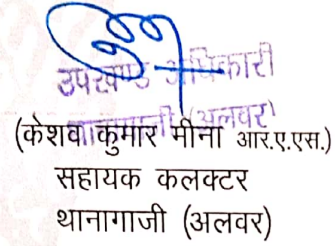 उपखण्ड अधिकारी
थानागाजी (अलवर)
(केशव कुमार मीना आर.ए.एस.)
सहायक कलक्टर
थानागाजी (अलवर)